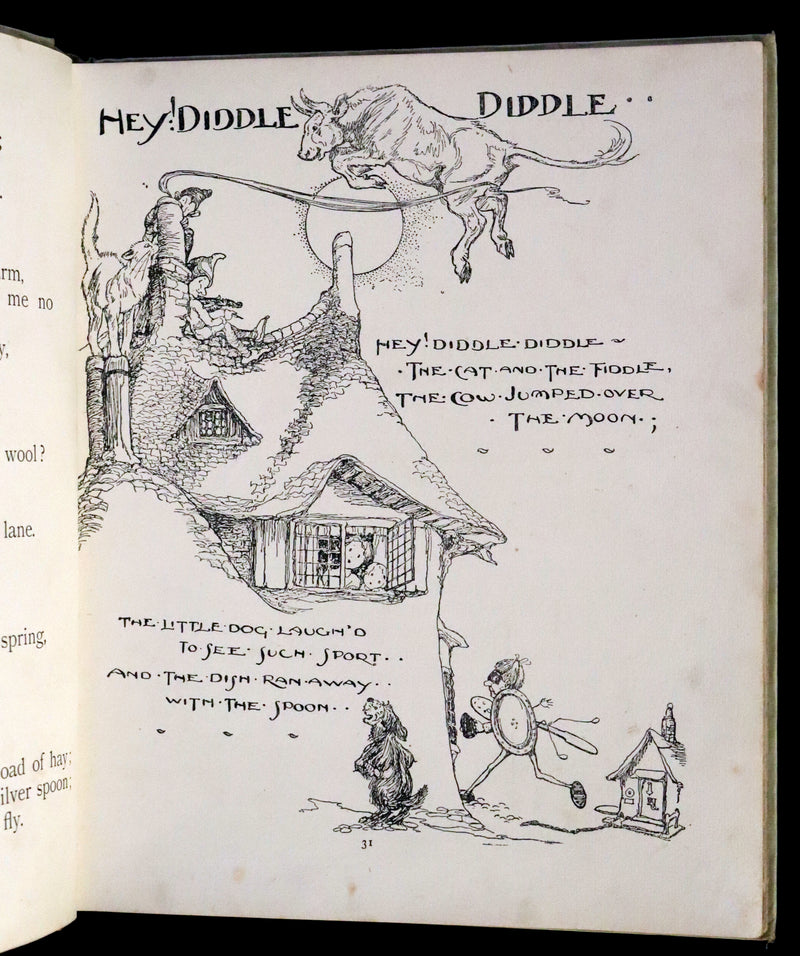 rm,
me no
y,
wool?
lane.
spring,
oad of hay;
ilver spoon;
fly.
HEY! DIDDLE DIDDLE..
HEY! DIDDLE·DIDDLE ~
·THE·CAT·AND·THE·FIDDLE,
THE·COW·JUMPED·OVER
·THE·MOON·;
THE·LITTLE·DOG·LAUGH'D
TO·SEE·SUCH·SPORT··
AND·THE·DISH·RAN·AWAY··
WITH·THE·SPOON··
31